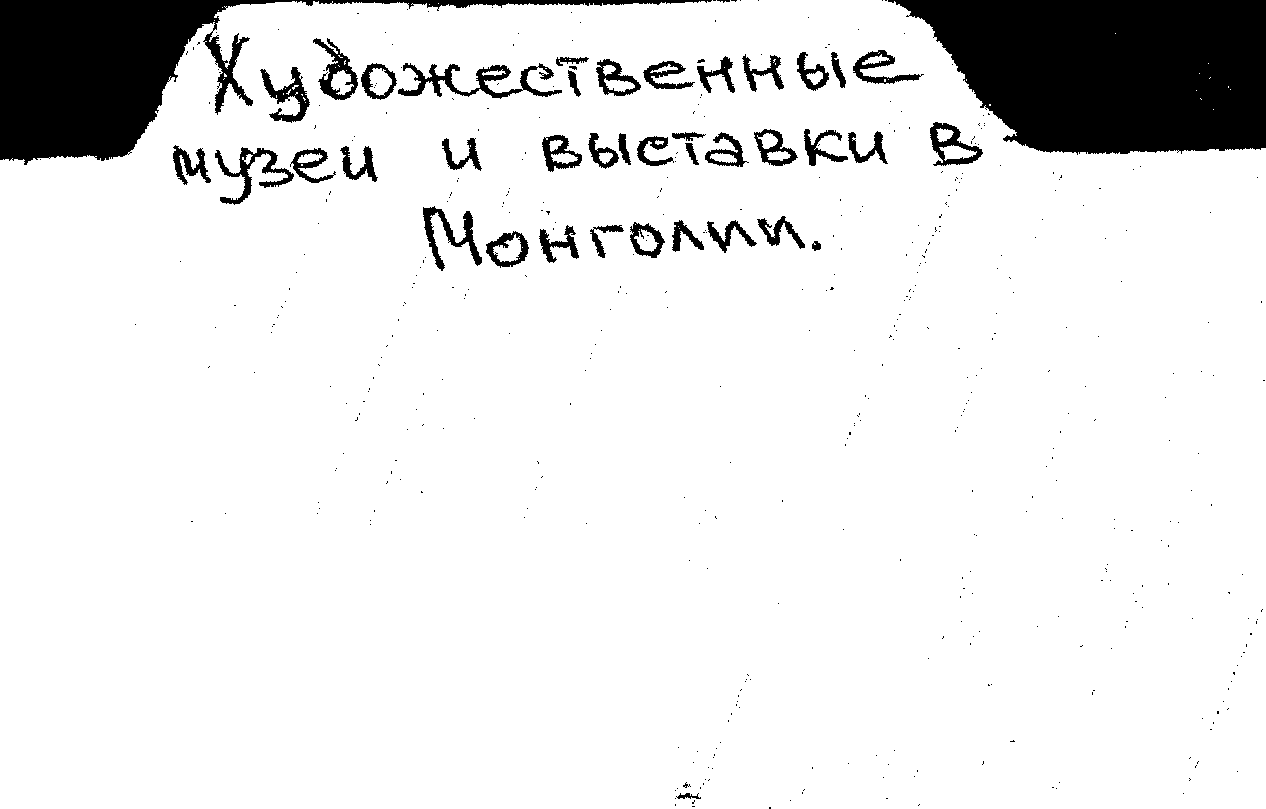 Художественные
музеи и выставки в
Монголии.